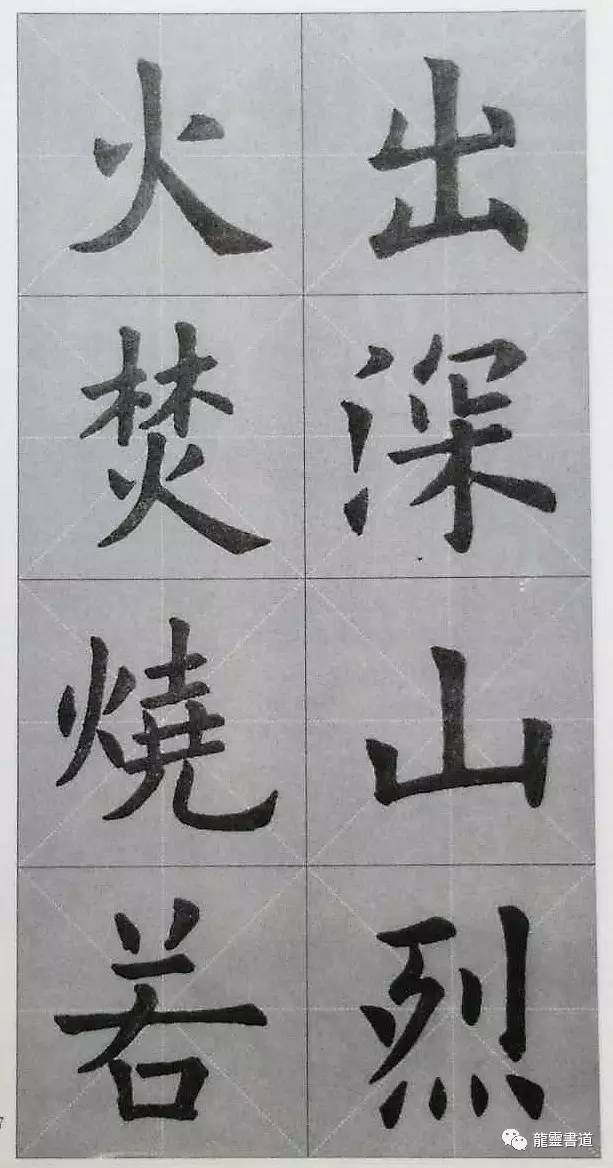 出深山烈
火焚燒若
7
龍靈書道